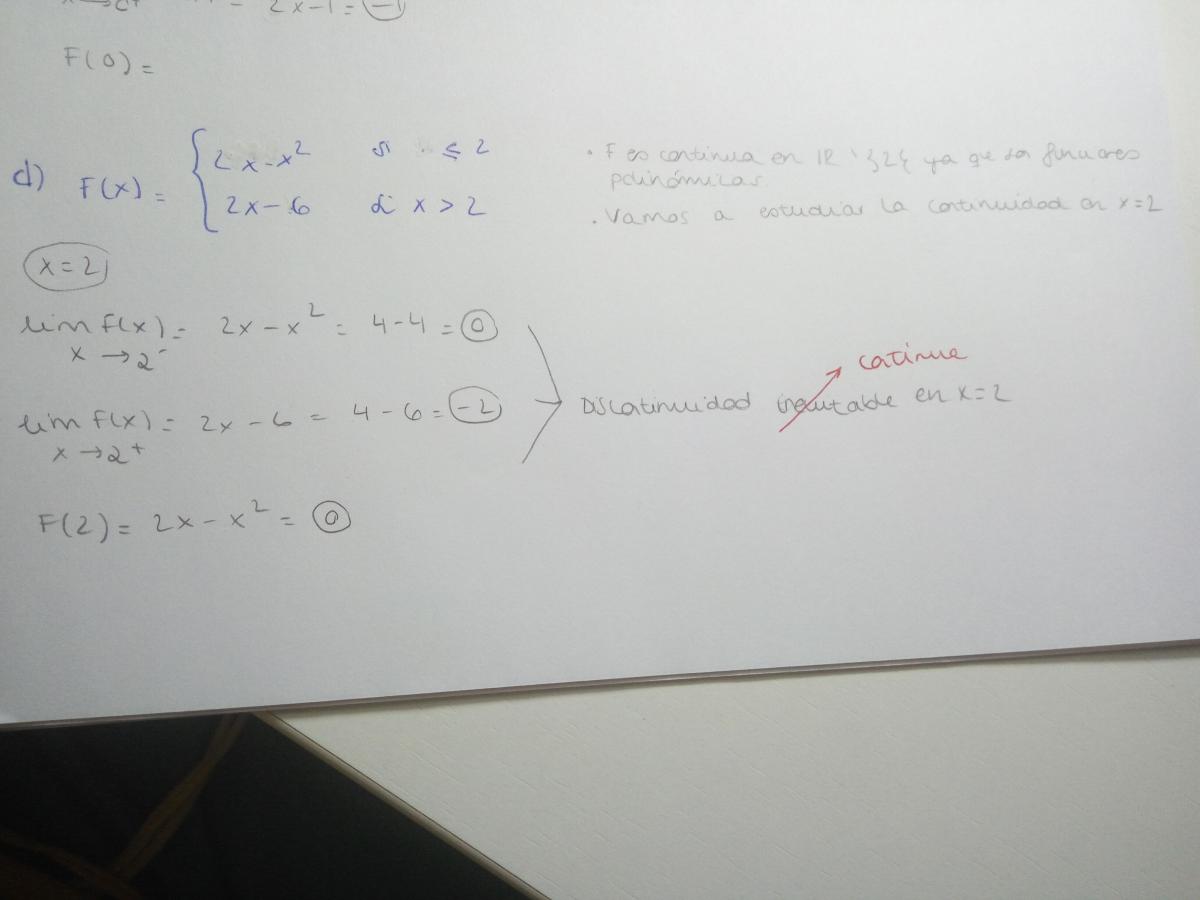 2x-1 = -1
F(0) =
d) F(x) = { 2x-x² si ≤ 2
2x-6 si x > 2
· F es continua en IR \ {2} ya que son funciones
polinómicas.
· Vamos a estudiar la continuidad en x=2
x=2
lim F(x) = 2x-x² = 4-4 = 0
x → 2⁻
lim F(x) = 2x-6 = 4-6 = -2
x → 2⁺
Discontinuidad en x=2
continua
F(2) = 2x-x² = 0